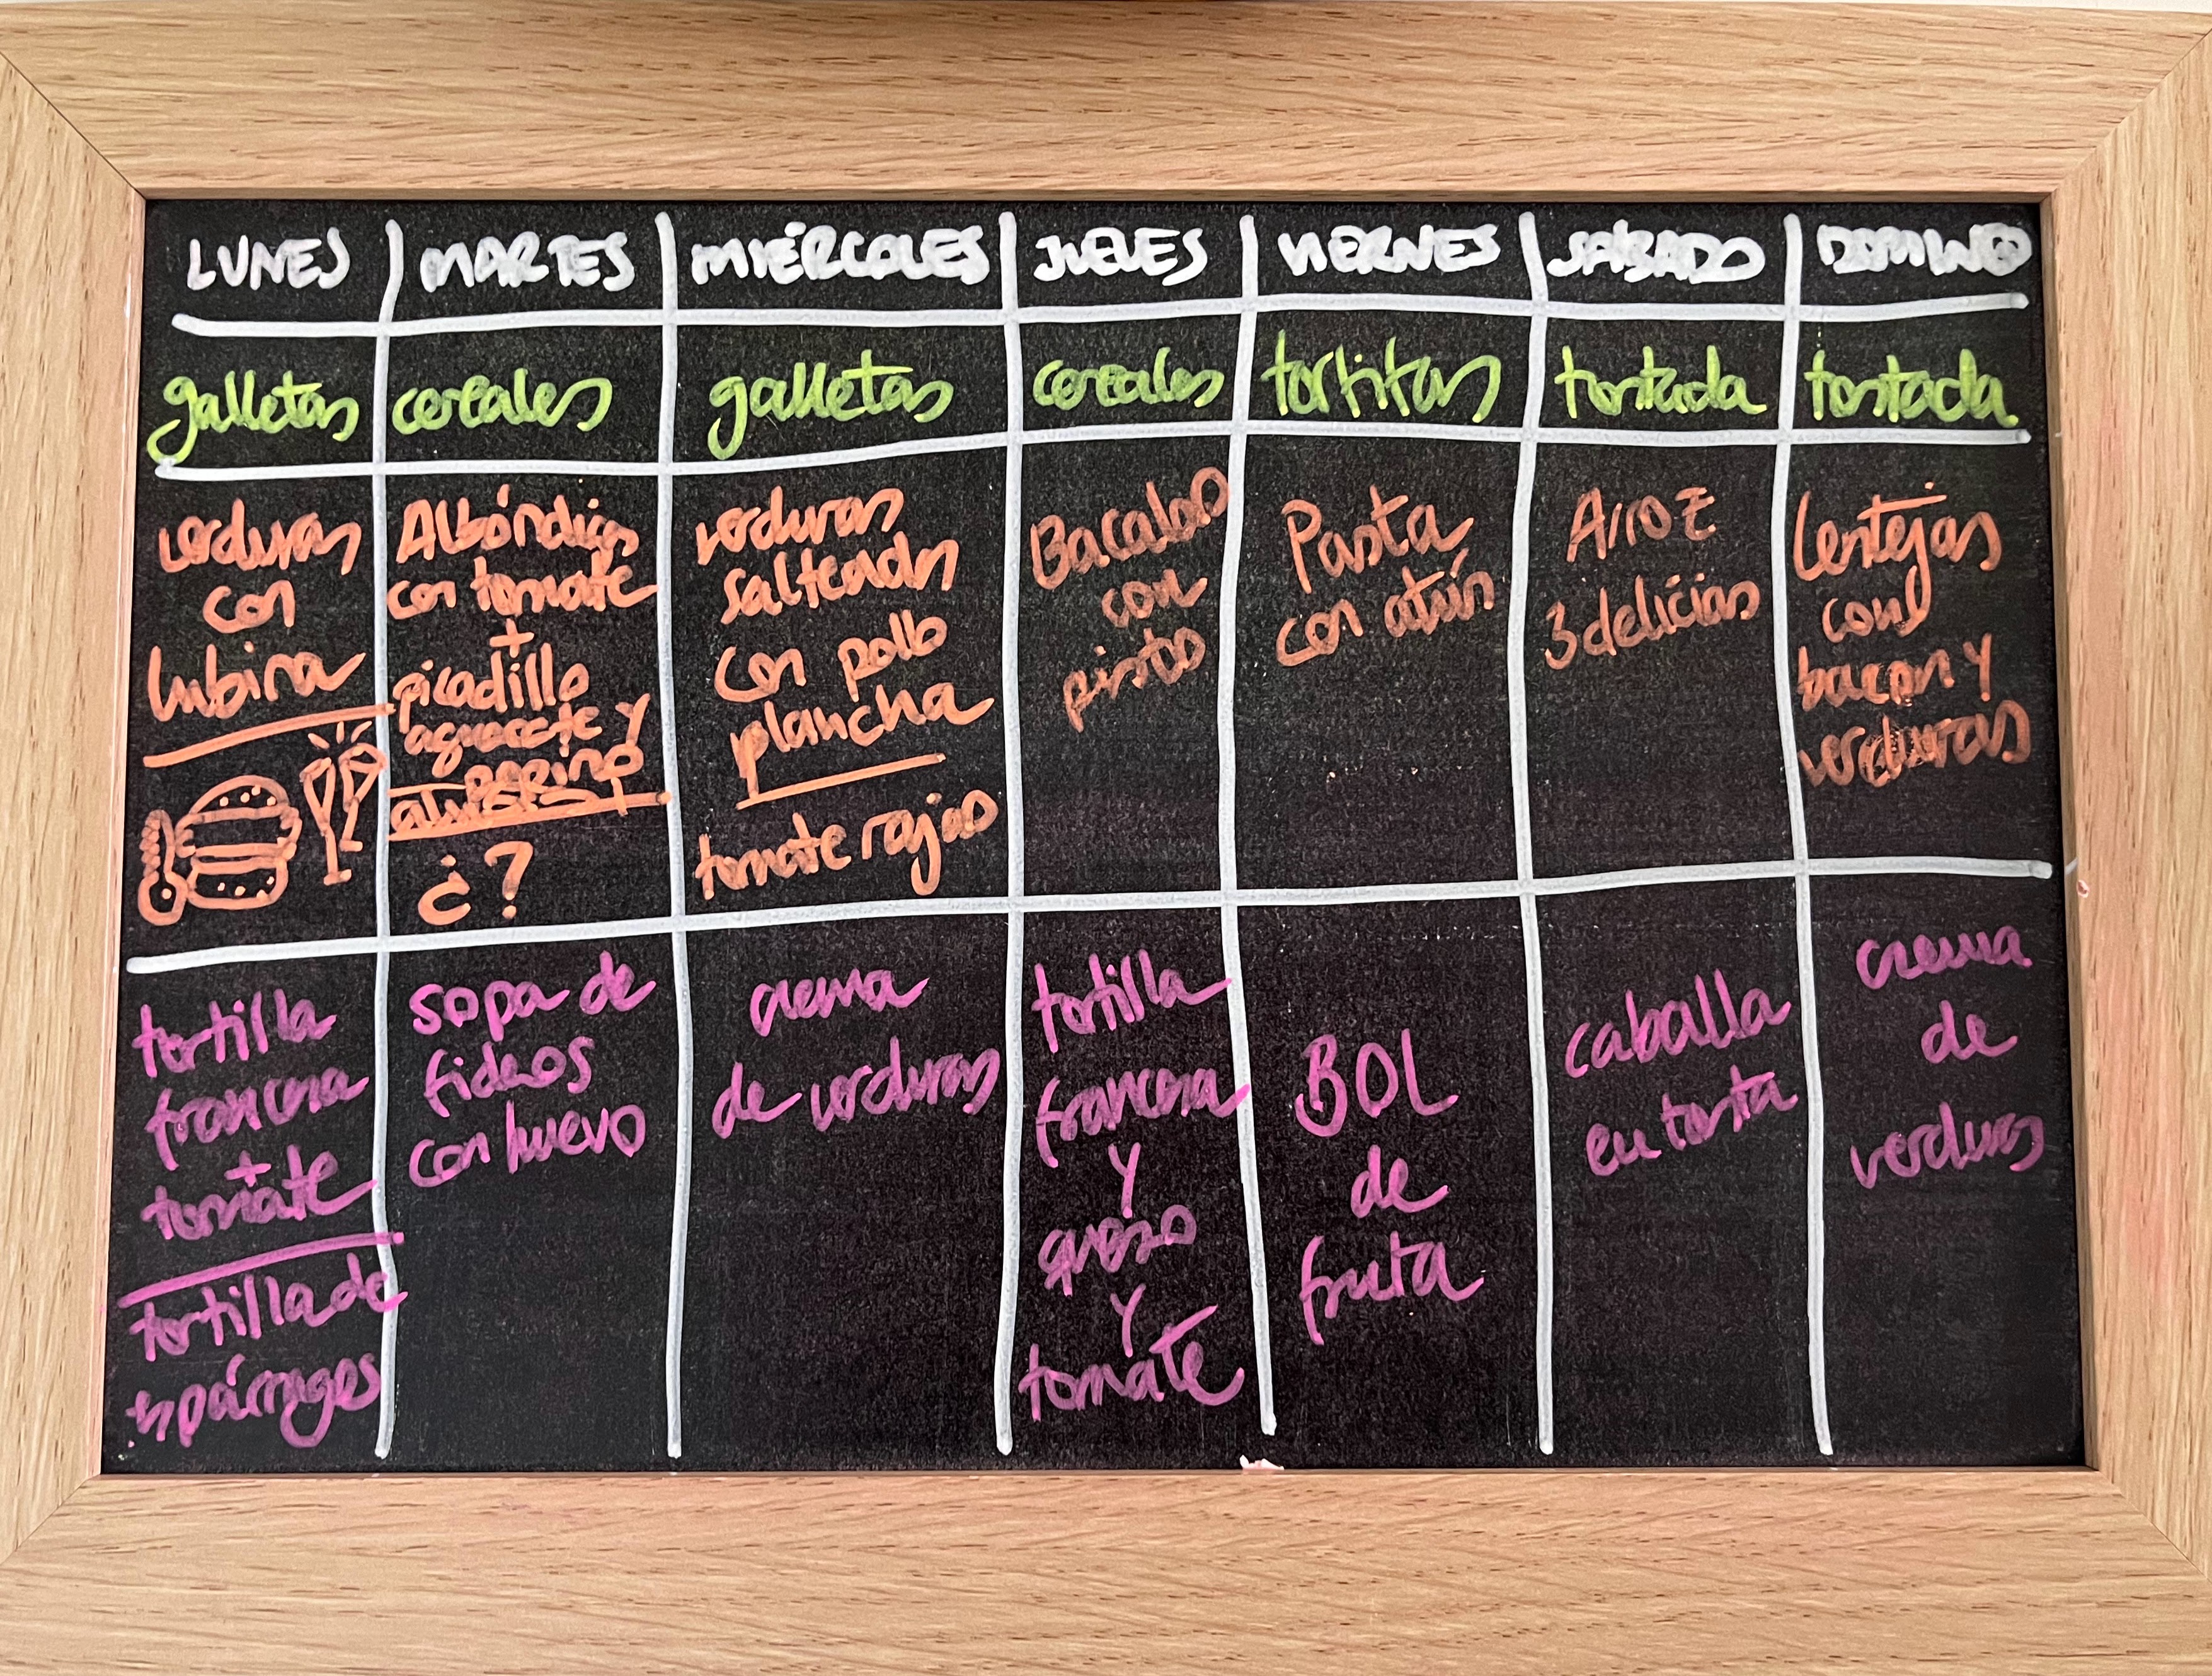 LUNES MARTES MIÉRCOLES JUEVES VIERNES SÁBADO DOMINGO
galletas cereales galletas cereales tortitas tostada tostada
verduras
con
lubina
Albóndigas
con tomate
+
picadillo
aguacate y
¿?
verduras
salteadas
con pollo
plancha
tomate rajas
Bacalao
con
pisto
Pasta
con atún
Arroz
3 delicias
Lentejas
con
bacon y
verduras
tortilla
francesa
+
tomate
tortilla de
espárragos
sopa de
fideos
con huevo
crema
de verduras
tortilla
francesa
y
queso
y
tomate
BOL
de
fruta
caballa
en tosta
crema
de
verduras